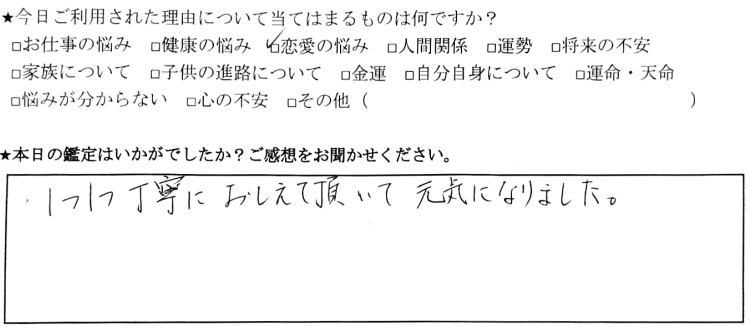 ★今日ご利用された理由について当てはまるものは何ですか？
□お仕事の悩み □健康の悩み ☑恋愛の悩み □人間関係 □運勢 □将来の不安
□家族について □子供の進路について □金運 □自分自身について □運命・天命
□悩みが分からない □心の不安 □その他（　　　　　　　　　　　　　　　　　　）
★本日の鑑定はいかがでしたか？ご感想をお聞かせください。
1つ1つ丁寧におしえて頂いて元気になりました。